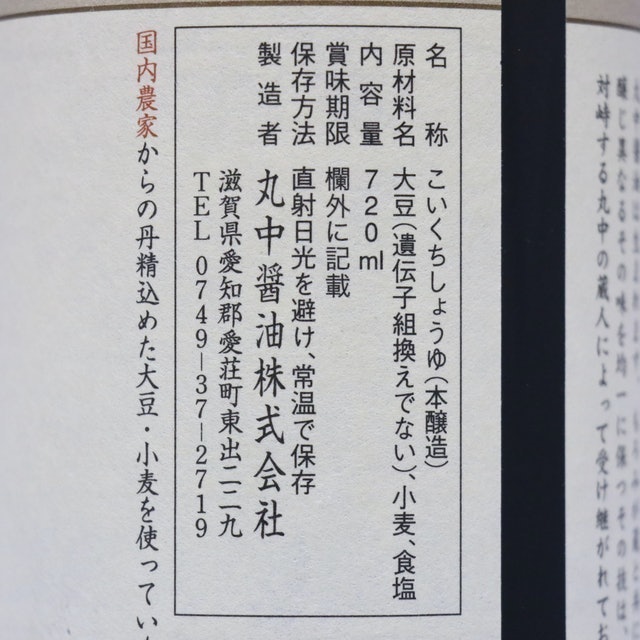 対峙する丸中の蔵人によって受け継がれてお
醸し異なるその味を均一に保つその技は、
名称 こいくちしょうゆ(本醸造)
原材料名 大豆(遺伝子組換えでない)、小麦、食塩
内容量 720ml
賞味期限 欄外に記載
保存方法 直射日光を避け、常温で保存
製造者 丸中醤油株式会社
滋賀県愛知郡愛荘町東出二二九
TEL 0749-37-2719
国内農家からの丹精込めた大豆・小麦を使ってい